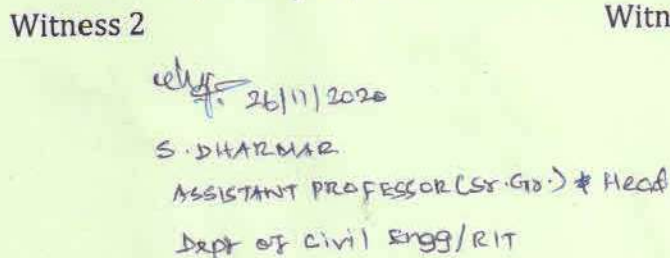 Witness 2 Witn
26/11/2020
S. DHARMAR
ASSISTANT PROFESSOR (Sr.Gr.) & Head
Dept of Civil Engg/RIT